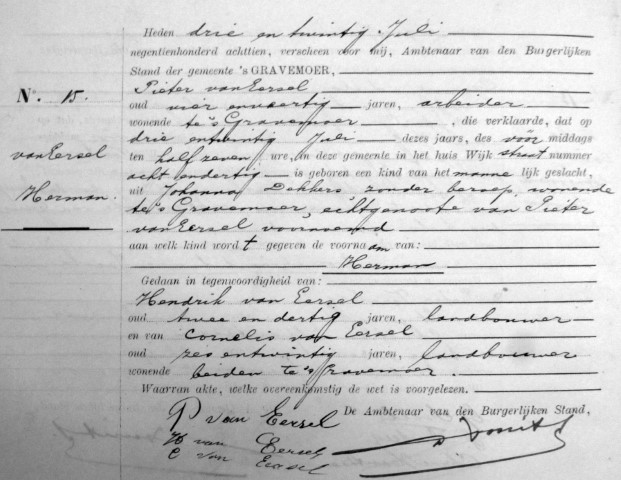 Heden drie en twintig Juli
negentienhonderd achttien, verscheen voor mij, Ambtenaar van den Burgerlijken
Stand der gemeente 's GRAVEMOER,
Nº. 15.
Pieter van Eersel
oud vier en veertig jaren, arbeider
wonende te 's Gravemoer, die verklaarde, dat op
drie en twintig Juli dezes jaars, des vóór middags
van Eersel
ten half zeven ure, in deze gemeente in het huis Wijk straat nummer
acht en dertig is geboren een kind van het manne lijk geslacht,
Herman.
uit Johanna Dekkers zonder beroep, wonende
te 's Gravemoer, echtgenoote van Pieter
van Eersel voornoemd
aan welk kind word t gegeven de voorna am van:
Herman
Gedaan in tegenwoordigheid van:
Hendrik van Eersel
oud twee en dertig jaren, landbouwer
en van Cornelis van Eersel
oud zes en twintig jaren, landbouwer
wonende beiden te 's Gravemoer.
Waarvan akte, welke overeenkomstig de wet is voorgelezen.
De Ambtenaar van den Burgerlijken Stand,
P van Eersel
H van Eersel
C van Eersel